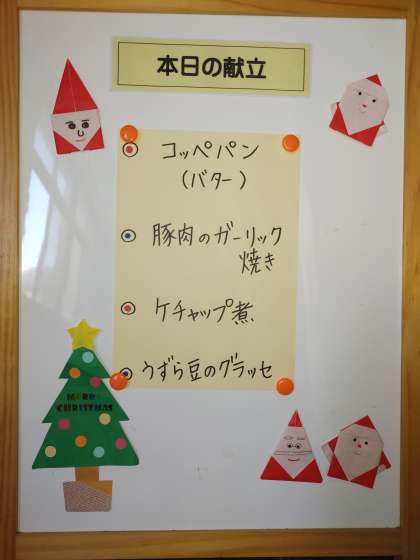 本日の献立
コッペパン
(バター)
豚肉のガーリック
焼き
ケチャップ煮
うずら豆のグラッセ
MERRY
CHRISTMAS